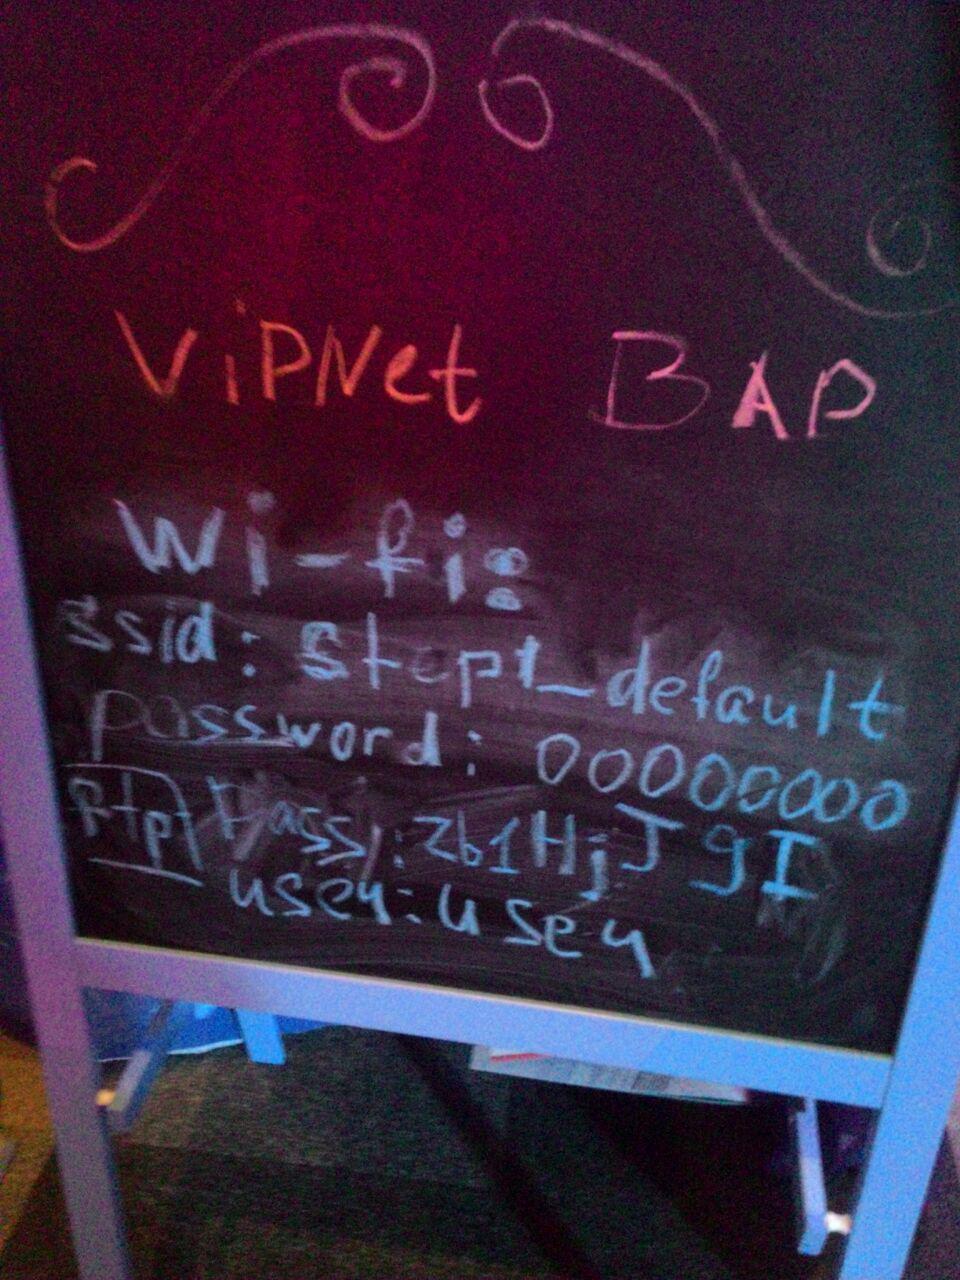 ViPNet BAP
Wi-fi:
ssid: step1_default
password: 00000000
ftp pass: Zb1HjJgI
user: user